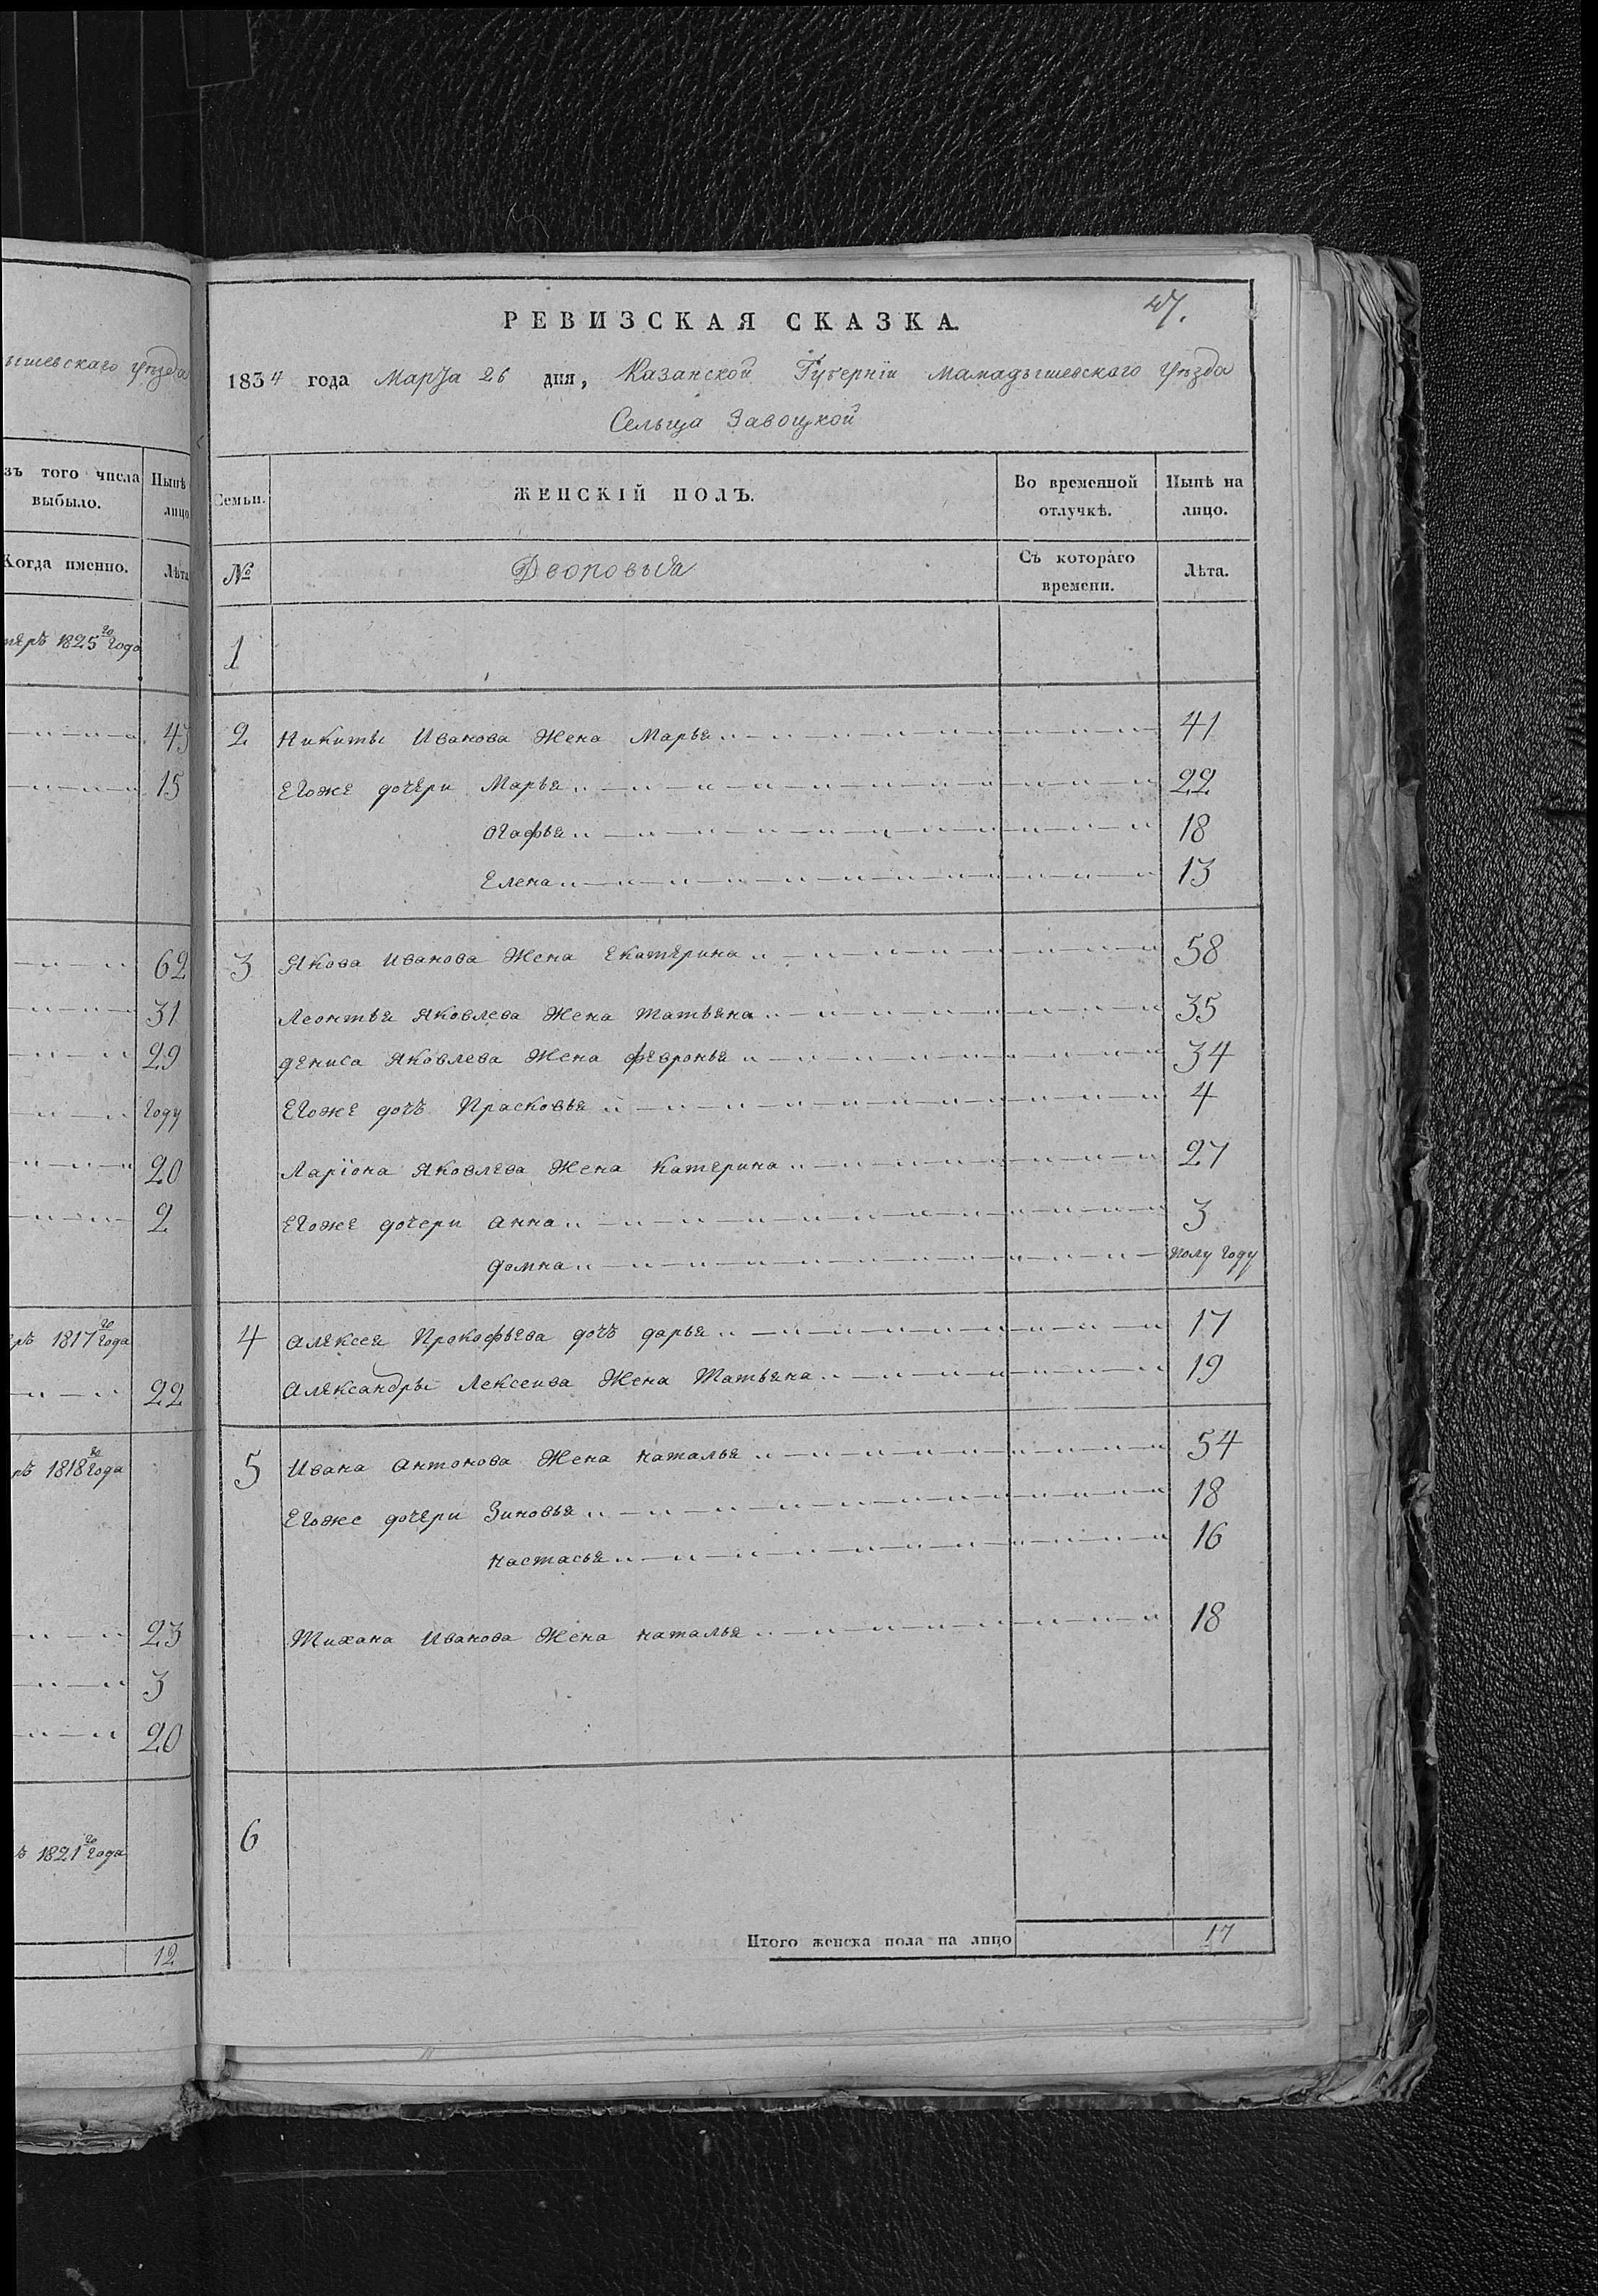 ышевскаго уѣзда
зъ того числа выбыло.
Нынѣ лицо
Когда именно.
Лѣта
1825го года
43
15
62
31
29
году
20
2
1817го года
22
1818го года
23
3
20
1821го года
12
47.
РЕВИЗСКАЯ СКАЗКА.
1834 года Марта 26 дня, Казанской Губерніи Мамадышевскаго уѣзда
Сельца Завоцкой
Семьи.
ЖЕНСКІЙ ПОЛЪ.
Во временной отлучкѣ.
Нынѣ на лицо.
№
Дворовыя
Съ котораго времени.
Лѣта.
1
2 Никиты Иванова Жена Марья 41
Егоже дочери Марья 22
Огафья 18
Елена 13
3 Якова Иванова Жена Екатерина 58
Леонтья Яковлева Жена Татьяна 35
Дениса Яковлева Жена Февронья 34
Егоже дочь Прасковья 4
Ларіона Яковлева Жена Катерина 27
Егоже дочери Анна 3
Домна полу году
4 Алексея Прокофьева дочь дарья 17
Александры Лексеива Жена Татьяна 19
5 Ивана Антонова Жена Наталья 54
Егоже дочери Зиновья 18
Настасья 16
Тихана Иванова Жена Наталья 18
6
Итого женска пола на лицо 17